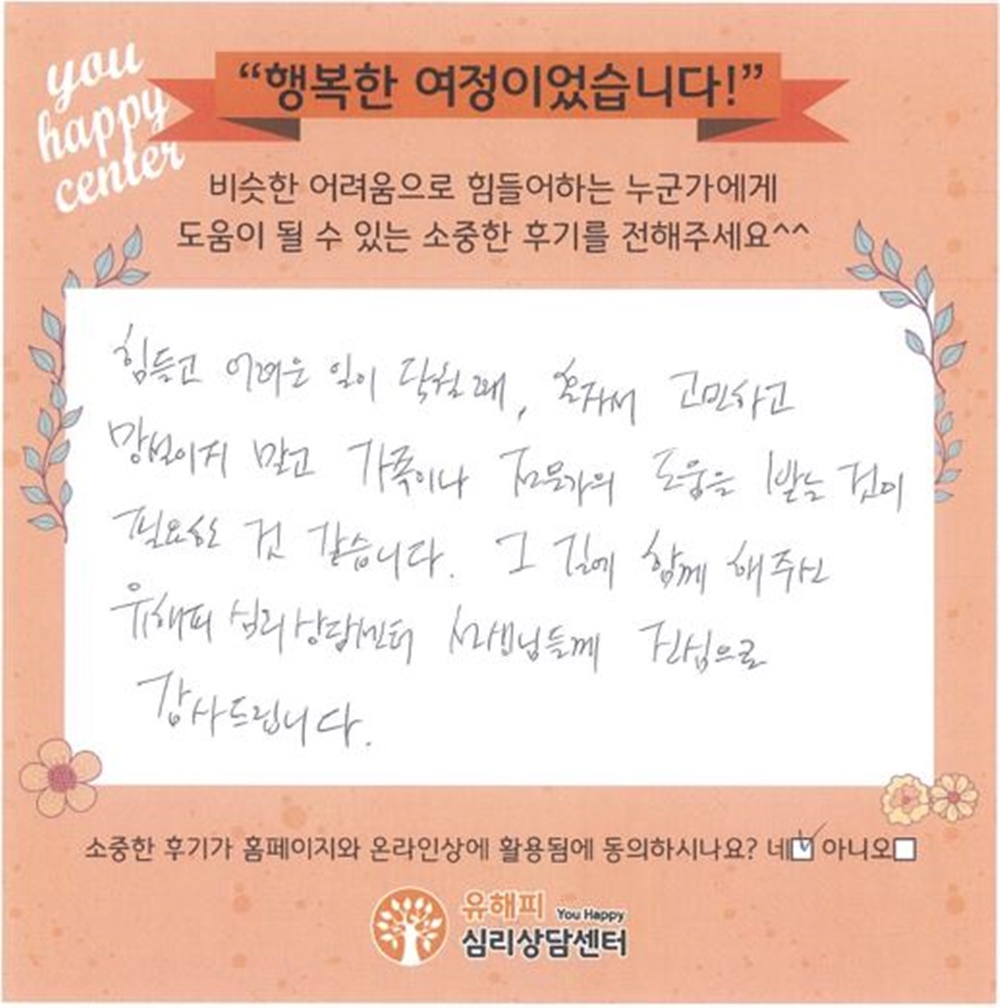 you
happy
center
“행복한 여정이었습니다!”
비슷한 어려움으로 힘들어하는 누군가에게
도움이 될 수 있는 소중한 후기를 전해주세요^^
힘들고 어려운 일이 닥칠 때, 혼자서 고민하고
망설이지 말고 가족이나 전문가의 도움을 받는 것이
필요한 것 같습니다. 그 길에 함께 해주신
유해피 심리상담센터 선생님들께 진심으로
감사드립니다.
소중한 후기가 홈페이지와 온라인상에 활용됨에 동의하시나요? 네☑ 아니오☐
유해피 You Happy
심리상담센터